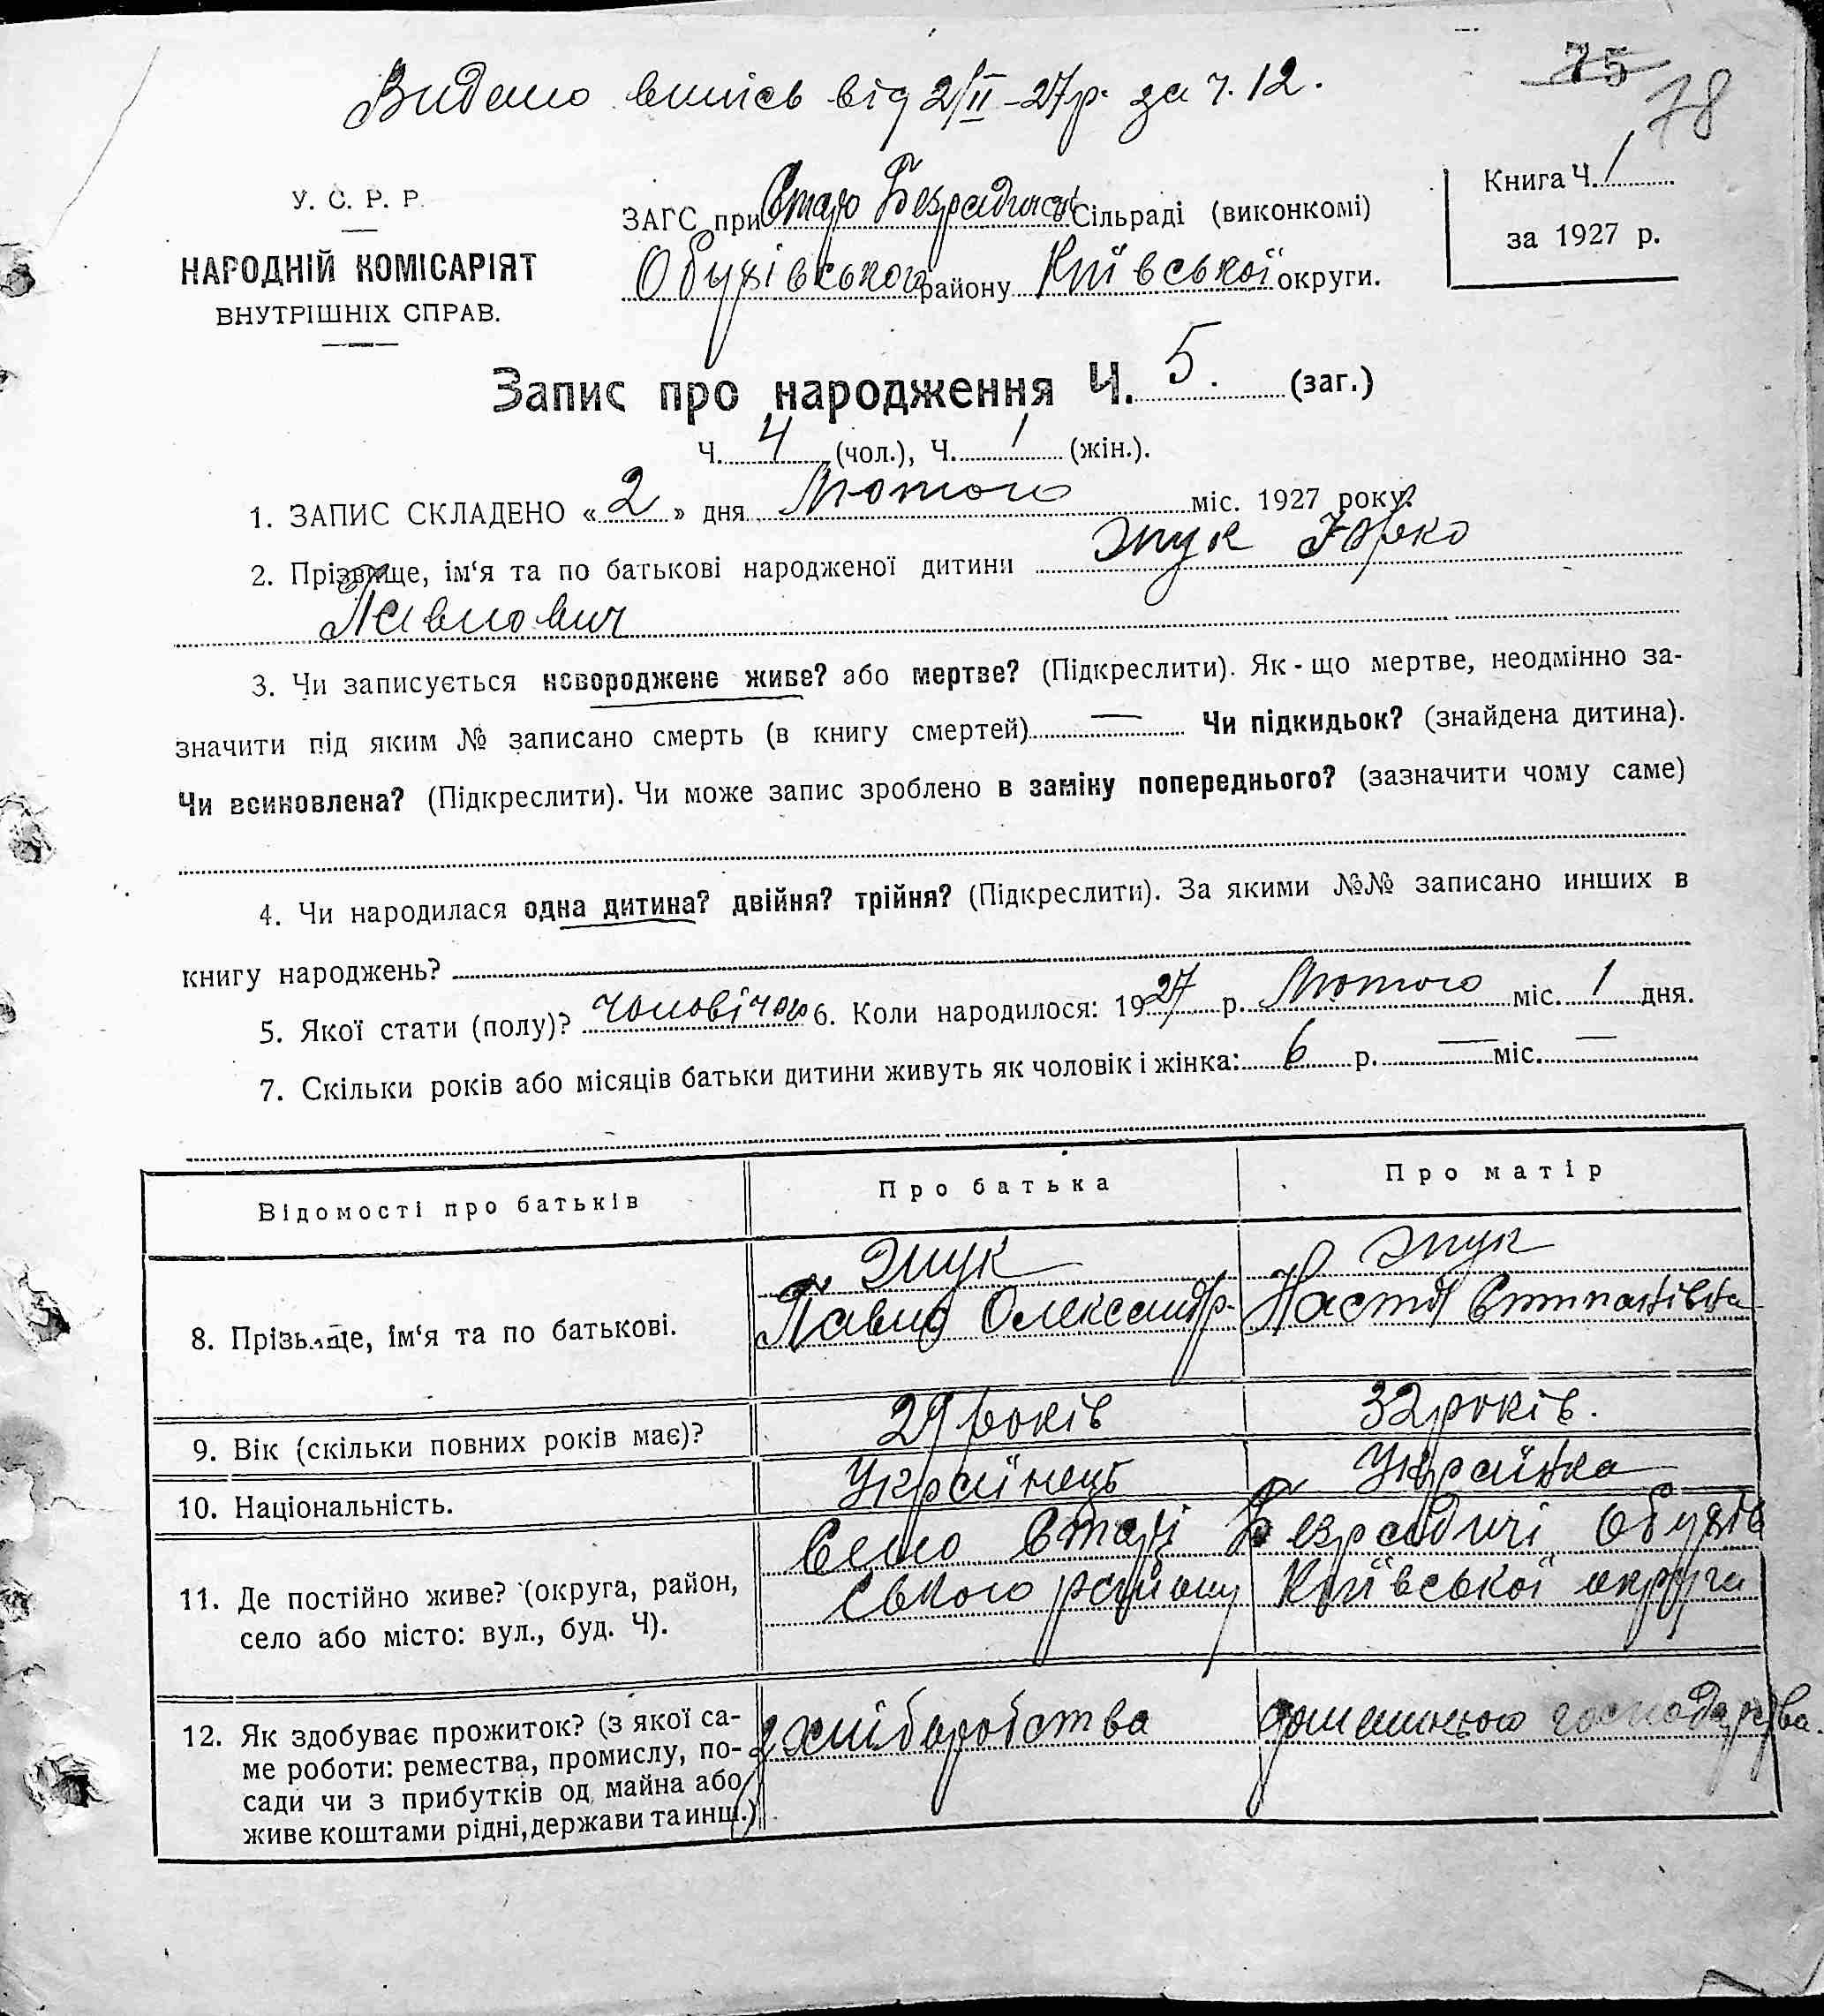 Видано випись від 2/II-27р. за ч. 12.
75
78
У. С. Р. Р.
НАРОДНІЙ КОМІСАРІЯТ
ВНУТРІШНІХ СПРАВ.
ЗАГС при Старо Безрадицькій Сільраді (виконкомі)
Обухівського району Київської округи.
Книга Ч. 1
за 1927 р.
Запис про народження Ч. 5. (заг.)
Ч. 4 (чол.), Ч. 1 (жін.).
1. ЗАПИС СКЛАДЕНО «2» дня Лютого міс. 1927 року.
2. Прізвище, ім'я та по батькові народженої дитини Жук Юрко
Павлович
3. Чи записується новороджене живе? або мертве? (Підкреслити). Як-що мертве, неодмінно за-
значити під яким № записано смерть (в книгу смертей) — Чи підкидьок? (знайдена дитина).
Чи всиновлена? (Підкреслити). Чи може запис зроблено в заміну попереднього? (зазначити чому саме)
4. Чи народилася одна дитина? двійня? трійня? (Підкреслити). За якими №№ записано инших в
книгу народжень?
5. Якої стати (полу)? чоловічої 6. Коли народилося: 1927 р. Лютого міс. 1 дня.
7. Скільки років або місяців батьки дитини живуть як чоловік і жінка: 6 р. — міс. —
Відомості про батьків Про батька Про матір
8. Прізвище, ім'я та по батькові.
Жук
Павло Олександр.
Жук
Настя Степанівна
9. Вік (скільки повних років має)? 29 років 32 років.
10. Національність. Українець Українка
11. Де постійно живе? (округа, район,
село або місто: вул., буд. Ч).
Село Старі Безрадичі Обухів
ського району Київської округи
12. Як здобуває прожиток? (з якої са-
ме роботи: ремества, промислу, по-
сади чи з прибутків од майна або
живе коштами рідні, держави та инш.)
з хліборобства
домашнього господарства.